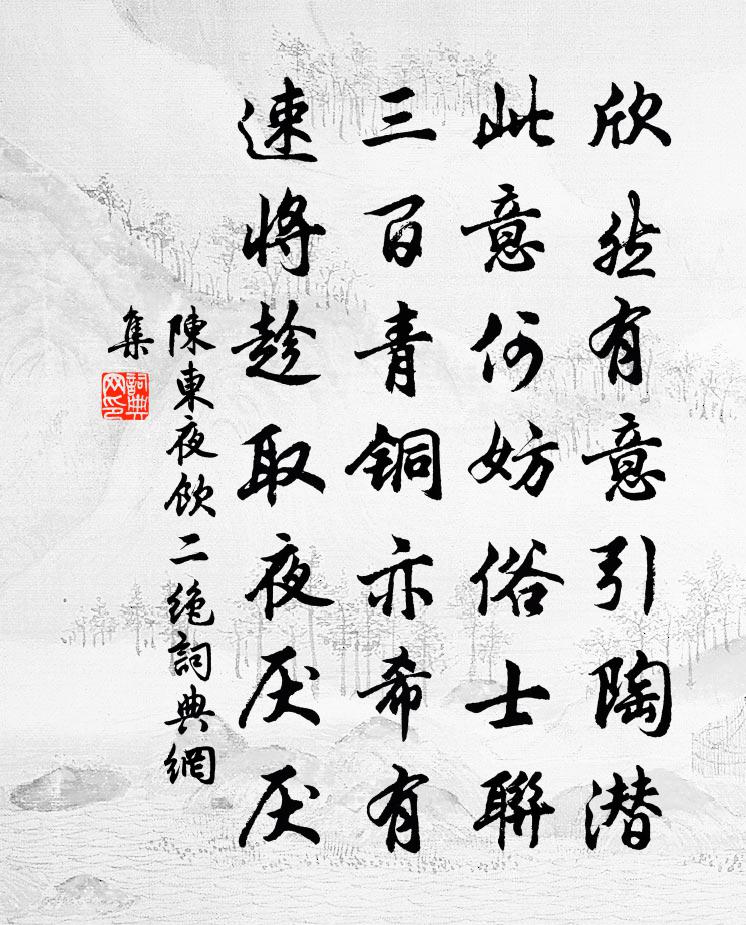 欣然有意引陶潜
此意何妨俗士聯
三百青铜亦希有
速将趁取夜厌厌
陳東夜飲二绝詞典網
集
詞典网印